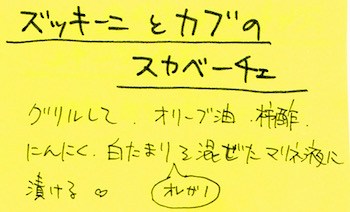 ズッキーニとカブの
スカベーチェ
グリルして、オリーブ油、柿酢、
にんにく、白たまりを混ぜたマリネ液に
漬ける♡
オレガノ